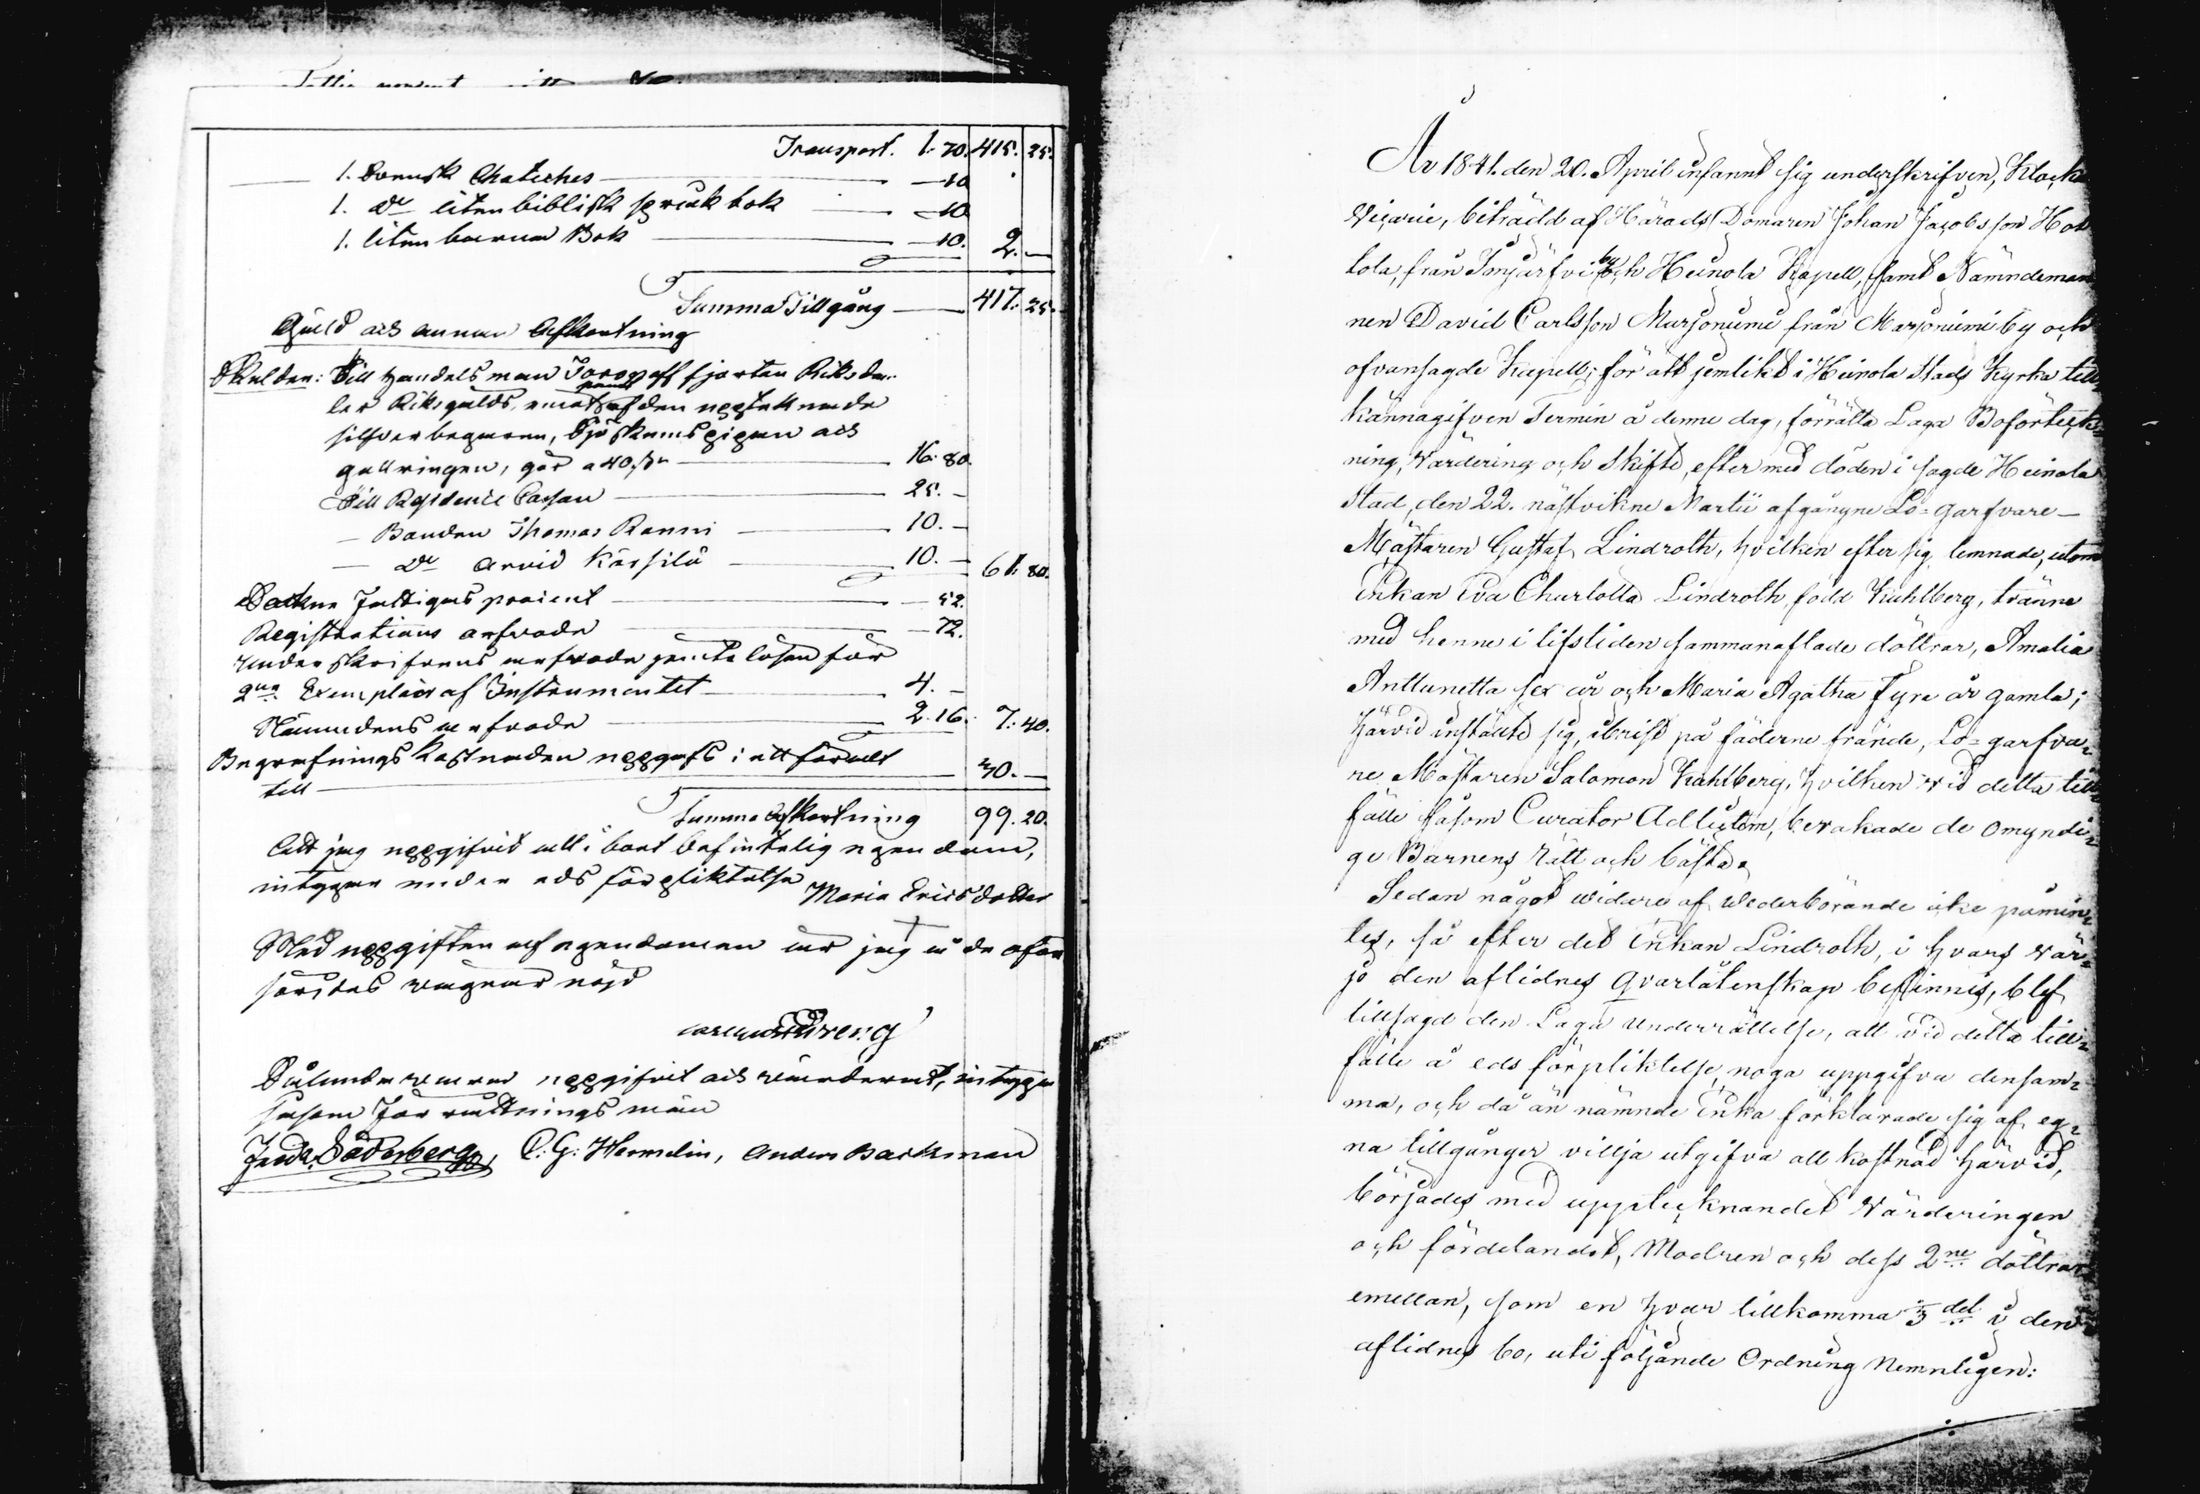 Transport. 1. 70. 415. 25.
1. Svensk Chatiches — 10
1. Do liten biblisk språk bok — 10
1. liten barna Bok — 10. 2. —
Summa Tillgång — 417. 25.
Gäld och annan Afkortning
Skulder: Till Handelsman fjorton Riksda
ler Riksgälds, emot pant af den upptaknade
silfver bägaren, Sjöskumspipan och
gullringen, gör a 40 — 16. 80.
Till Cassan — 25. —
— Bonden Thomas Ranni — 10. —
— Do Arvid Kärsilä — 10. — 61. 80.
Fattigas procent — 52.
Registrations arfvode — 72.
Underskrifvens arfvode jemte lösen för
2ne Exemplar af Instrumentet — 4. —
Nämndens arfvode — 2. 16. 7. 40.
Begrafnings Kostnaden uppgafs i ett för allt
till — 30. —
Summa Afkortning 99. 20.
Att jag uppgifvit all i boet befintelig egendom,
intygar under eds förpliktelse Maria Ericsdotter
Med uppgiften af egendomen är jag å de
vägnar nöjd
Sålunda vara uppgifvit och värderadt, intyga
såsom förrättningsmän
Söderberg, C. G. Hermelin, Anders Backman
År 1841. den 20. April infannt sig underskrifven, Klock
Vicarie, biträdd af Härads Domaren Johan Jacobsson Hot
tola, från Imjärfvi by och Heinola Kapell, samt Nämndeman
nen David Carlsson Marjoniemi från Marjoniemi by och
ofvansagde Kapell; för att jemlikt i Heinola Stads Kyrka till=
kännagifven Termin å denne dag, förrätta Laga Boförteck=
ning, Värdering och Skifte, efter med döden i sagde Heinola
Stad, den 22. nästvikne Martii afgångne Lo=garfvare—
Mästaren Gustaf Lindroth, hvilken efter sig lemnade, utom
Enkan Eva Charlotta Lindroth, född Kahlberg, tvänne
med henne i lifstiden sammanaflade döttrar, Amalia
Anttunetta sex år och Maria Agatha Fyra år gamla;
härvid instälte sig, i brist på fäderne frände, Lo=garfva=
re Mästaren Salomon Kahlberg, hvilken vid detta till=
fälle såsom Curator Ad Litem, bevakade de omyndi=
ge Barnens rätt och bästa.
Sedan något vidare af Vederbörande icke påmin=
tes, så efter det Enkan Lindroth, i hvars vär=
jo den aflidnes qvarlåtenskap befinnes, blef
tillsagd den Laga Underrättelse, att vid detta till=
fälle å eds förpliktelse, noga uppgifva densam=
ma, och då än nämnde Enka förklarade sig af eg=
na tillgångar villja utgifva all kostnad härvid,
börjades med upptecknandet Värderingen
och fördelandet, Modren och dess 2ne döttrar
emellan, som en hvar tillkomma 1/3 del i den
aflidnes bo, uti följande Ordning Nemnligen: